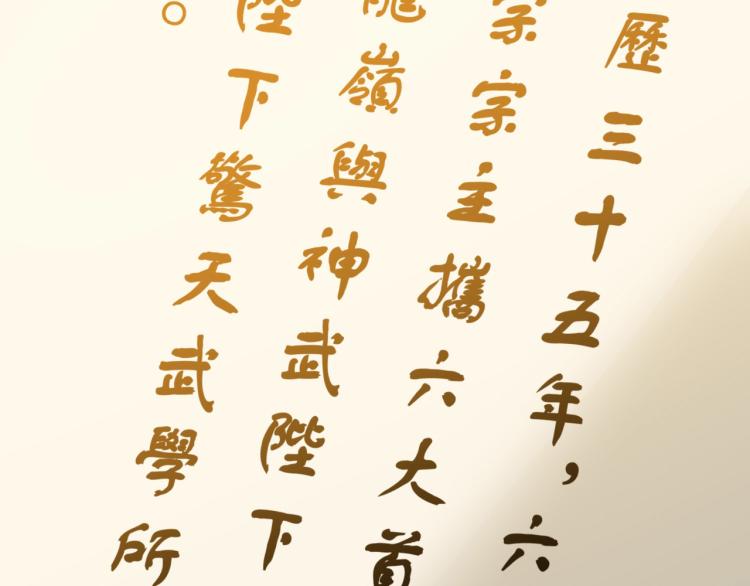 歷三十五年，六
宗宗主攜六大首
龍嶺與神武陛下
陛下驚天武學所
。